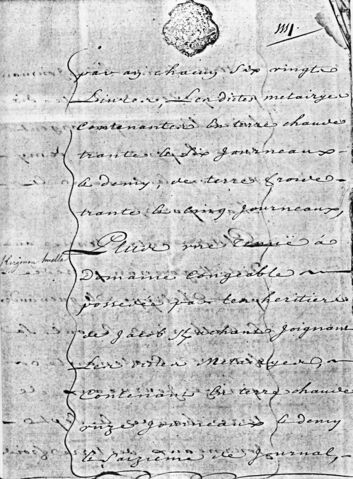 par an chacun six vingts
Livres, Les dittes metairyes
Contenantes En terre chaude
trante & six Journeaux
& demy, de terre froide
trante & cinq Journeaux,
Plus une Tenüe à
Domaine congeable
possedée par les heritiers
de Jacob Joignant
Les dittes Metairyes,
Contenant En terre chaude
onze Journeaux & demy
& saizieme de Journal,